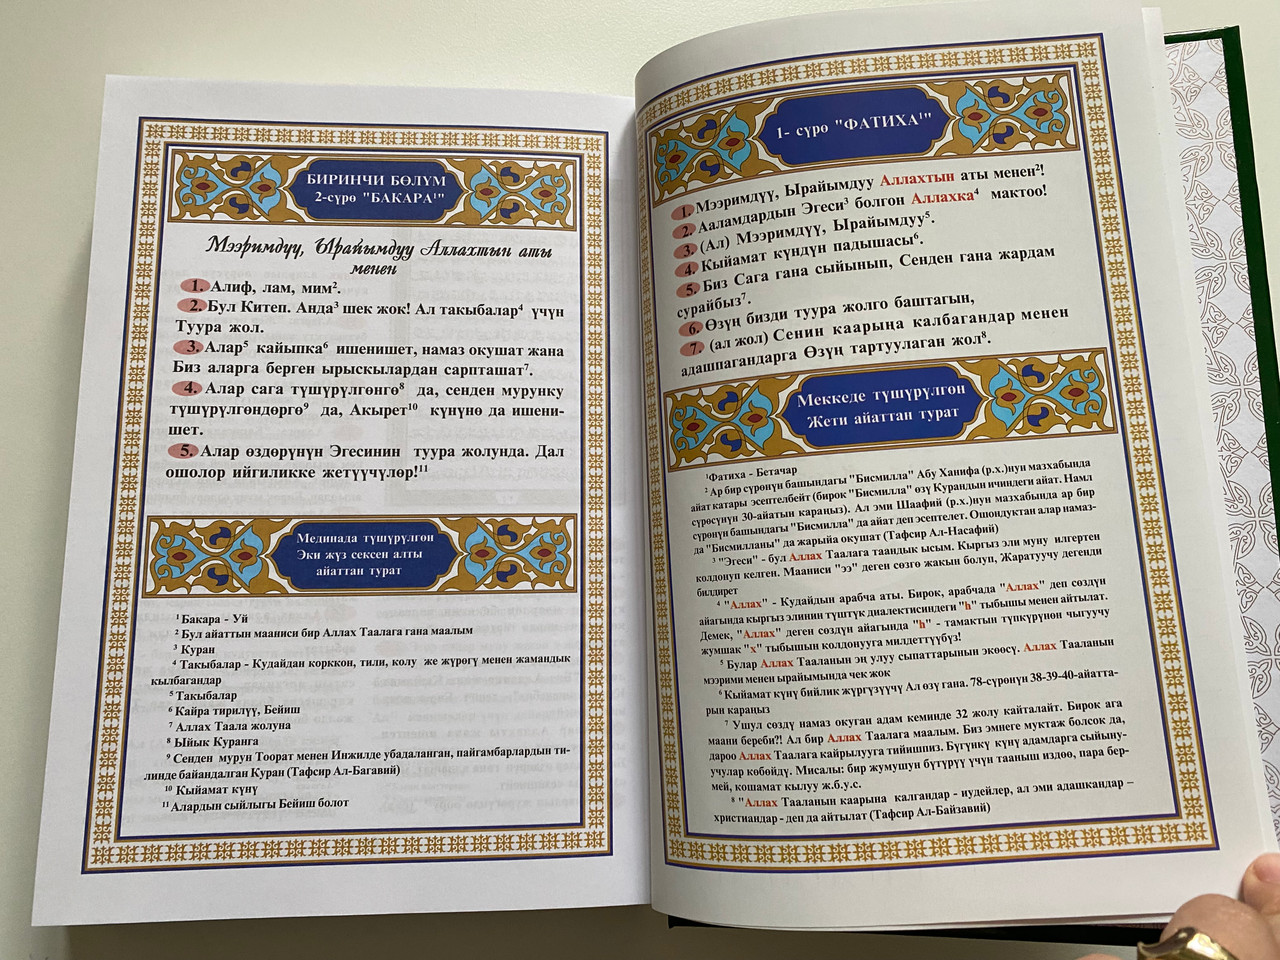 1- сүрө "ФАТИХА¹"
1. Мээримдүү, Ырайымдуу Аллахтын аты менен²!
2. Ааламдардын Эгеси³ болгон Аллахка⁴ мактоо!
3. (Ал) Мээримдүү, Ырайымдуу⁵.
4. Кыйамат күндүн падышасы⁶.
5. Биз Сага гана сыйынып, Сенден гана жардам
сурайбыз⁷.
6. Өзүң бизди туура жолго баштагын,
7. (ал жол) Сенин каарыңа калбагандар менен
адашпагандарга Өзүң тартуулаган жол⁸.
Меккеде түшүрүлгөн
Жети айаттан турат
¹Фатиха - Бетачар
² Ар бир сүрөнүн башындагы "Бисмилла" Абу Ханифа (р.х.)нун мазхабында
айат катары эсептелбейт (бирок "Бисмилла" өзү Курандын ичиндеги айат. Намл
сүрөсүнүн 30-айатын караңыз). Ал эми Шаафий (р.х.)нун мазхабында ар бир
сүрөнүн башындагы "Бисмилла" да айат деп эсептелет. Ошондуктан алар намаз-
да "Бисмилланы" да жарыйа окушат (Тафсир Ал-Насафий)
³ "Эгеси" - бул Аллах Таалага таандык ысым. Кыргыз эли муну илгертен
колдонуп келген. Мааниси "ээ" деген сөзгө жакын болуп, Жаратуучу дегенди
билдирет
⁴ "Аллах" - Кудайдын арабча аты. Бирок, арабчада "Аллах" деп сөздүн
айагында кыргыз элинин түштүк диалектисиндеги "h" тыбышы менен айтылат.
Демек, "Аллах" деген сөздүн айагында "h" - тамактын түпкүрүнөн чыгуучу
жумшак "х" тыбышын колдонууга милдеттүүбүз!
⁵ Булар Аллах Тааланын эң улуу сыпаттарынын экөөсү. Аллах Тааланын
мээрими менен ырайымында чек жок
⁶ Кыйамат күнү бийлик жүргүзүүчү Ал өзү гана. 78-сүрөнүн 38-39-40-айатта-
рын караңыз
⁷ Ушул сөздү намаз окуган адам кеминде 32 жолу кайталайт. Бирок ага
маани береби?! Ал бир Аллах Таалага маалым. Биз эмнеге муктаж болсок да,
дароо Аллах Таалага кайрылууга тийишпиз. Бүгүнкү күнү адамдарга сыйыну-
учулар көбөйдү. Мисалы: бир жумушун бүтүрүү үчүн тааныш издөө, пара бер-
мей, кошамат кылуу ж.б.у.с.
⁸ "Аллах Тааланын каарына калгандар - иудейлер, ал эми адашкандар –
христиандар - деп да айтылат (Тафсир Ал-Байзавий)
БИРИНЧИ БӨЛҮМ
2-сүрө "БАКАРА¹"
Мээримдүү, Ырайымдуу Аллахтын аты
менен
1. Алиф, лам, мим².
2. Бул Китеп. Анда³ шек жок! Ал такыбалар⁴ үчүн
Туура жол.
3. Алар⁵ кайышка⁶ ишенишет, намаз окушат жана
Биз аларга берген ырыскылардан сарпташат⁷.
4. Алар сага түшүрүлгөнгө⁸ да, сенден мурунку
түшүрүлгөндөргө⁹ да, Акырет¹⁰ күнүнө да ишени-
шет.
5. Алар өздөрүнүн Эгесинин туура жолунда. Дал
ошолор ийгиликке жетүүчүлөр!¹¹
Мединада түшүрүлгөн
Эки жүз сексен алты
айаттан турат
¹ Бакара - Уй
² Бул айаттын мааниси бир Аллах Таалага гана маалым
³ Куран
⁴ Такыбалар - Кудайдан корккон, тили, колу же жүрөгү менен жамандык
кылбагандар
⁵ Такыбалар
⁶ Кайра тирилүү, Бейиш
⁷ Аллах Таала жолуна
⁸ Ыйык Куранга
⁹ Сенден мурун Тоорат менен Инжилде убадаланган, пайгамбарлардын ти-
линде байандалган Куран (Тафсир Ал-Багавий)
¹⁰ Кыйамат күнү
¹¹ Алардын сыйлыгы Бейиш болот